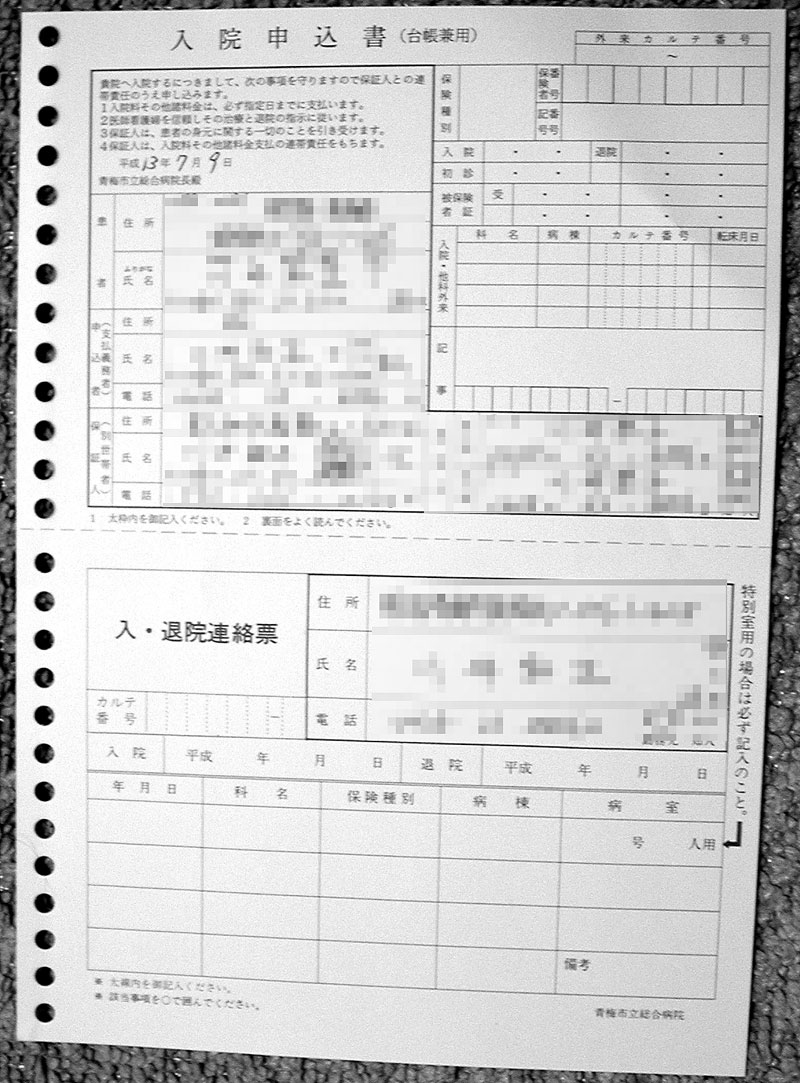 入院申込書(台帳兼用)
外来カルテ番号
～
貴院へ入院するにつきまして、次の事項を守りますので保証人との連
帯責任のうえ申し込みます。
1入院料その他諸料金は、必ず指定日までに支払います。
2医師看護婦を信頼しその治療と退院の指示に従います。
3保証人は、患者の身元に関する一切のことを引き受けます。
4保証人は、入院料その他諸料金支払の連帯責任をもちます。
平成13年7月9日
青梅市立総合病院長殿
保険種別
保険者番号
記号番号
入院 ・ ・ 退院 ・ ・
初診 ・ ・ ・ ・
被保険者証 受 ・ ・ ・ ・
・ ・ ・ ・
入院・他科外来
科名 病棟 カルテ番号 転床月日
記事
－
患者
住所
ふりがな
氏名
申込者(支払義務者)
住所
氏名
電話
保証人(別世帯者)
住所
氏名
電話
1 太枠内を御記入ください。 2 裏面をよく読んでください。
入・退院連絡票
住所
氏名
電話
カルテ番号 －
特別室用の場合は必ず記入のこと。
入院 平成 年 月 日 退院 平成 年 月 日
年月日 科名 保険種別 病棟 病室
号 人用
備考
※ 太線内を御記入ください。
※ 該当事項を○で囲んでください。
青梅市立総合病院